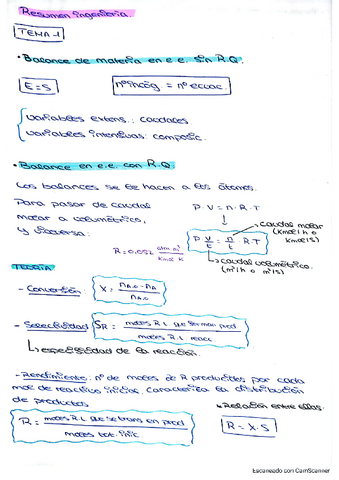 Resumen ingeniería.
TEMA 1
• Balance de materia en e.e. sin R.Q.
E = S
nº incóg = nº ecuac.
variables extens.: caudales
variables intensivas: composic.
• Balance en e.e. con R.Q.
Los balances se le hacen a los átomos.
Para pasar de caudal
molar a volumétrico,
y viceversa:
P · V = n · R · T
caudal molar
(Kmol/h o
Kmol/s)
P · V/t = n/t · R · T
caudal volumétrico
(m³/h o m³/s)
R = 0.082 atm·m³/Kmol·K
TEORÍA
- Conversión: X = nA,0 - nA / nA,0
- Selectividad SR = moles R.L que forman prod / moles R.L reacc
↳ especificidad de la reacción.
- Rendimiento: nº de moles de R producidos por cada
mol de reactivo inicial. Caracteriza la distribución
de productos
• Relación entre ellas:
R = moles R.L que se trans en prod / moles tot. inic.
R = X · S
Escaneado con CamScanner